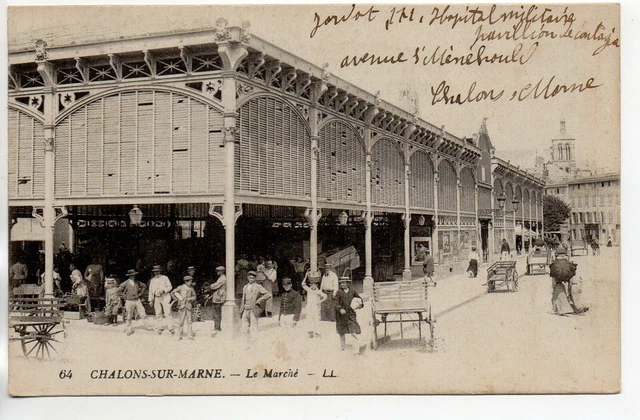 Jordot, Hôpital militaire
pavillon Contag
avenue Ste Ménehould
Chalons s/ Marne
64 CHALONS-SUR-MARNE. — Le Marché — LL